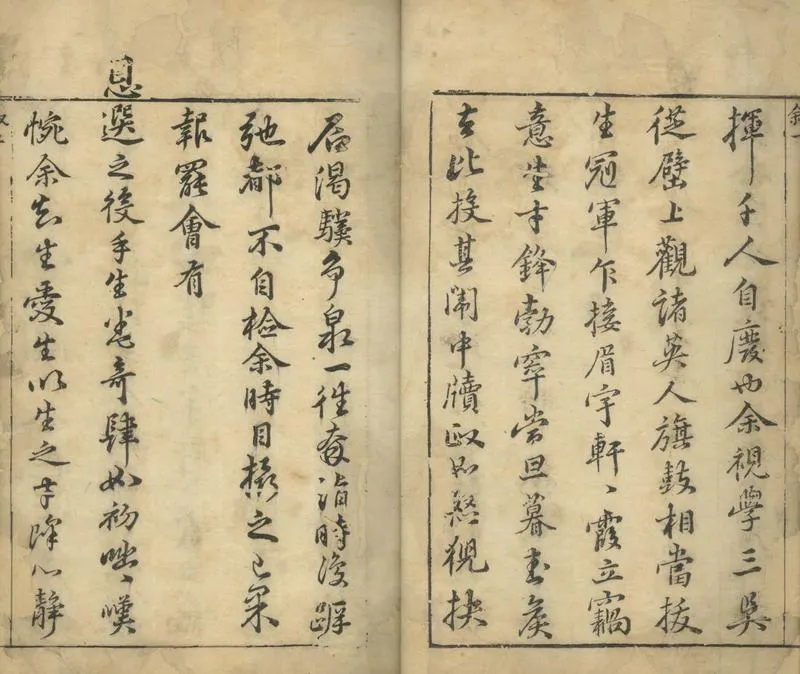 揮千人自廢也余視學三吳
從壁上觀諸英人旗鼓相當拔
生冠軍乍接眉宇軒〻霞立竊
意生才鋒勃窣當旦暮
比接其闈中牘政如怒猊抉
石渴驥奔泉一往奔詣時復
弛都不自檢余時目攝之已果
報罷會有
恩選之後手生卷奇肆如初咄〻嘆
惋余知生愛生以生之才降心靜